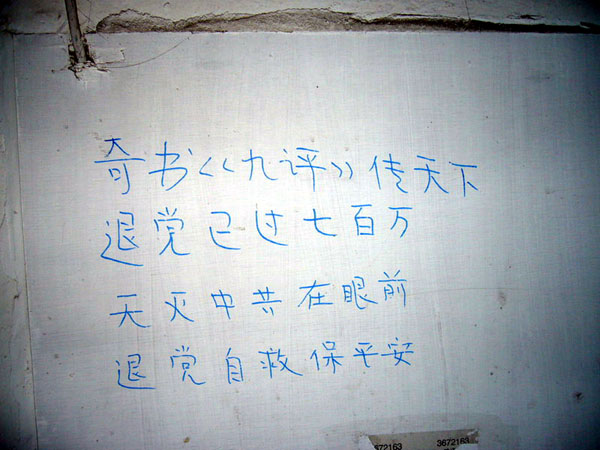 奇书《九评》传天下
退党已过七百万
天灭中共在眼前
退党自救保平安
3672163 3672163